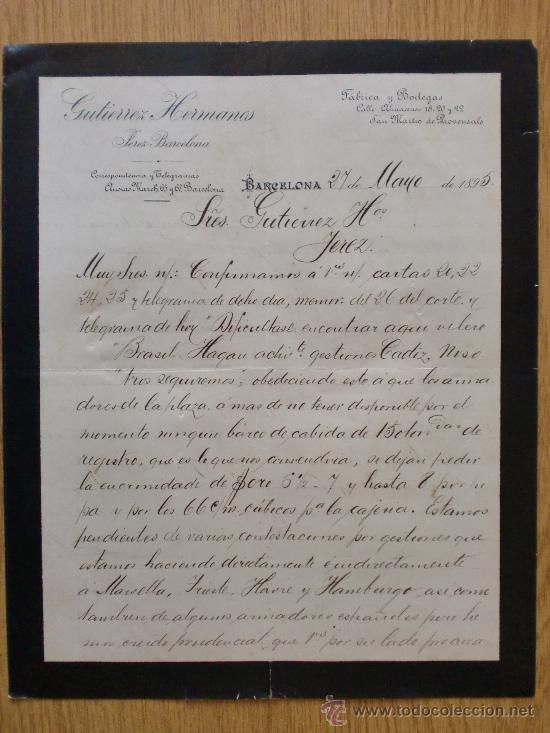 Gutierrez Hermanos
Jerez-Barcelona
Correspondencia y Telegramas
Ausias March 65 y 67, Barcelona
Fábrica y Bodegas
Calle Almacenes 18, 20 y 22
San Martin de Provensals
BARCELONA 27 de Mayo de 1895.
Sres. Gutierrez Hos
Jerez.
Muy Sres. n/: Confirmamos á Vds n/. cartas 20, 22
24, 25 y telegrama de dcho dia, memor. del 26 del corte. y
telegrama de hoy "Dificultase encontrar aqui velero
"Brasil. Hagan activte. gestiones Cadiz. Noso
"tros seguiremos", obedeciendo esto á que los arma
dores de la plaza á mas de no tener disponible por el
momento ningun barco de cabida de 15 de
registro, que es lo que nos convendria, se dejan pedir
la enormidad de 6 1/2 - 7 y hasta 8 por pi
pa y por los 66 c/m cúbicos pa la cajeria. Estamos
pendientes de varias contestaciones por gestiones que
estamos haciendo directamente e indirectamente
á Marsella, Trieste, Havre y Hamburgo, asi como
tambien de algunos armadores españoles pero he
mos creido prudencial que Vds por su lado procura
todocoleccion
www.todocoleccion.net